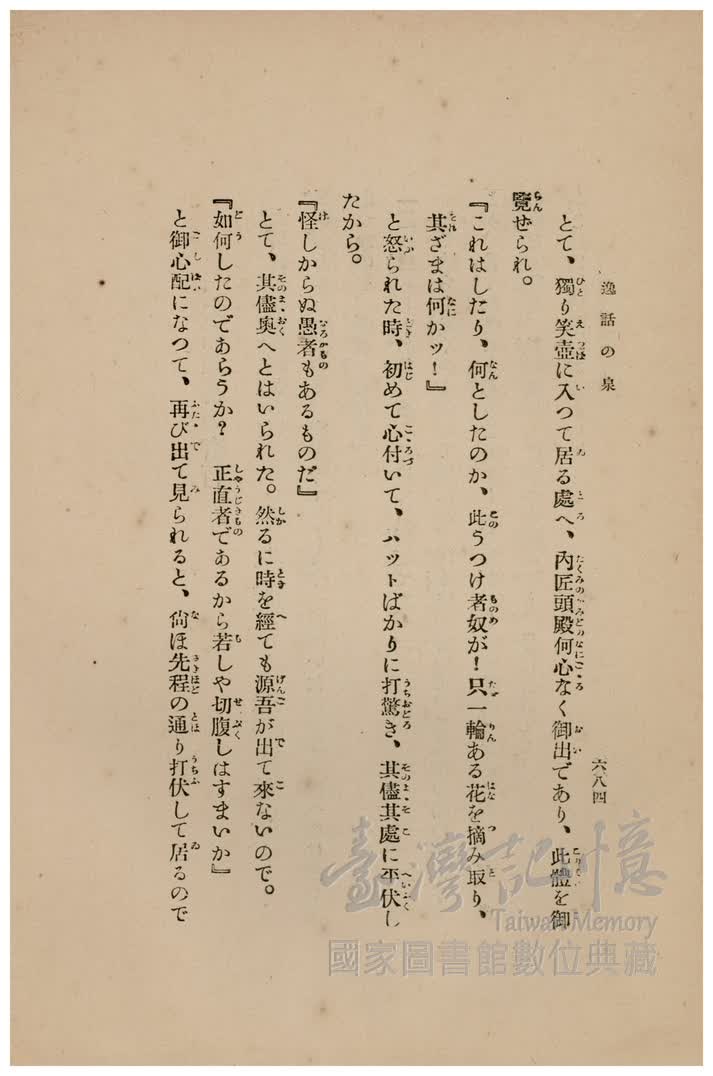 逸話の泉
六八四
とて、獨り笑壺に入つて居る處へ、內匠頭殿何心なく御出であり、此體を御
覽せられ。
『これはしたり、何としたのか、此うつけ者奴が！只一輪ある花を摘み取り、
其ざまは何かッ！』
と怒られた時、初めて心付いて、ハットばかりに打驚き、其儘其處に平伏し
たから。
『怪しからぬ愚者もあるものだ』
とて、其儘奧へとはいられた。然るに時を經ても源吾が出て來ないので。
『如何したのであらうか？　正直者であるから若しや切腹しはすまいか』
と御心配になつて、再び出て見られると、尙ほ先程の通り打伏して居るので
臺灣記憶
Taiwan Memory
國家圖書館數位典藏